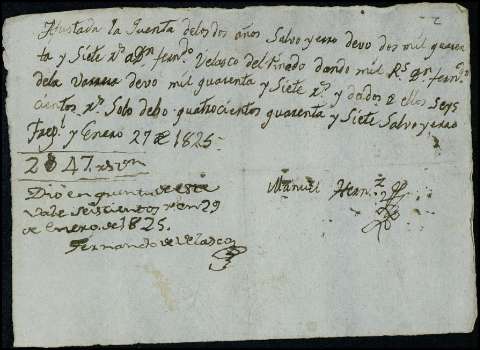 Ajustada la Quenta delos dos años Salvo yerro devo dos mil quaren
ta y Siete Rs a Dn Fern.do Velasco del Pinedo dando mil Rs Dn Fern.do
dela devo mil quarenta y Siete Rs y dados a ellos Seys
cientos Rs Solo debo quatrocientos quarenta y Siete Salvo yerro
y Enero 27 de 1825
2047. rs vn
Dió en quenta de este
Vale seiscientos rs en 29
de Enero. de 1825.
Fernando de Velasco
Manuel Hern.z